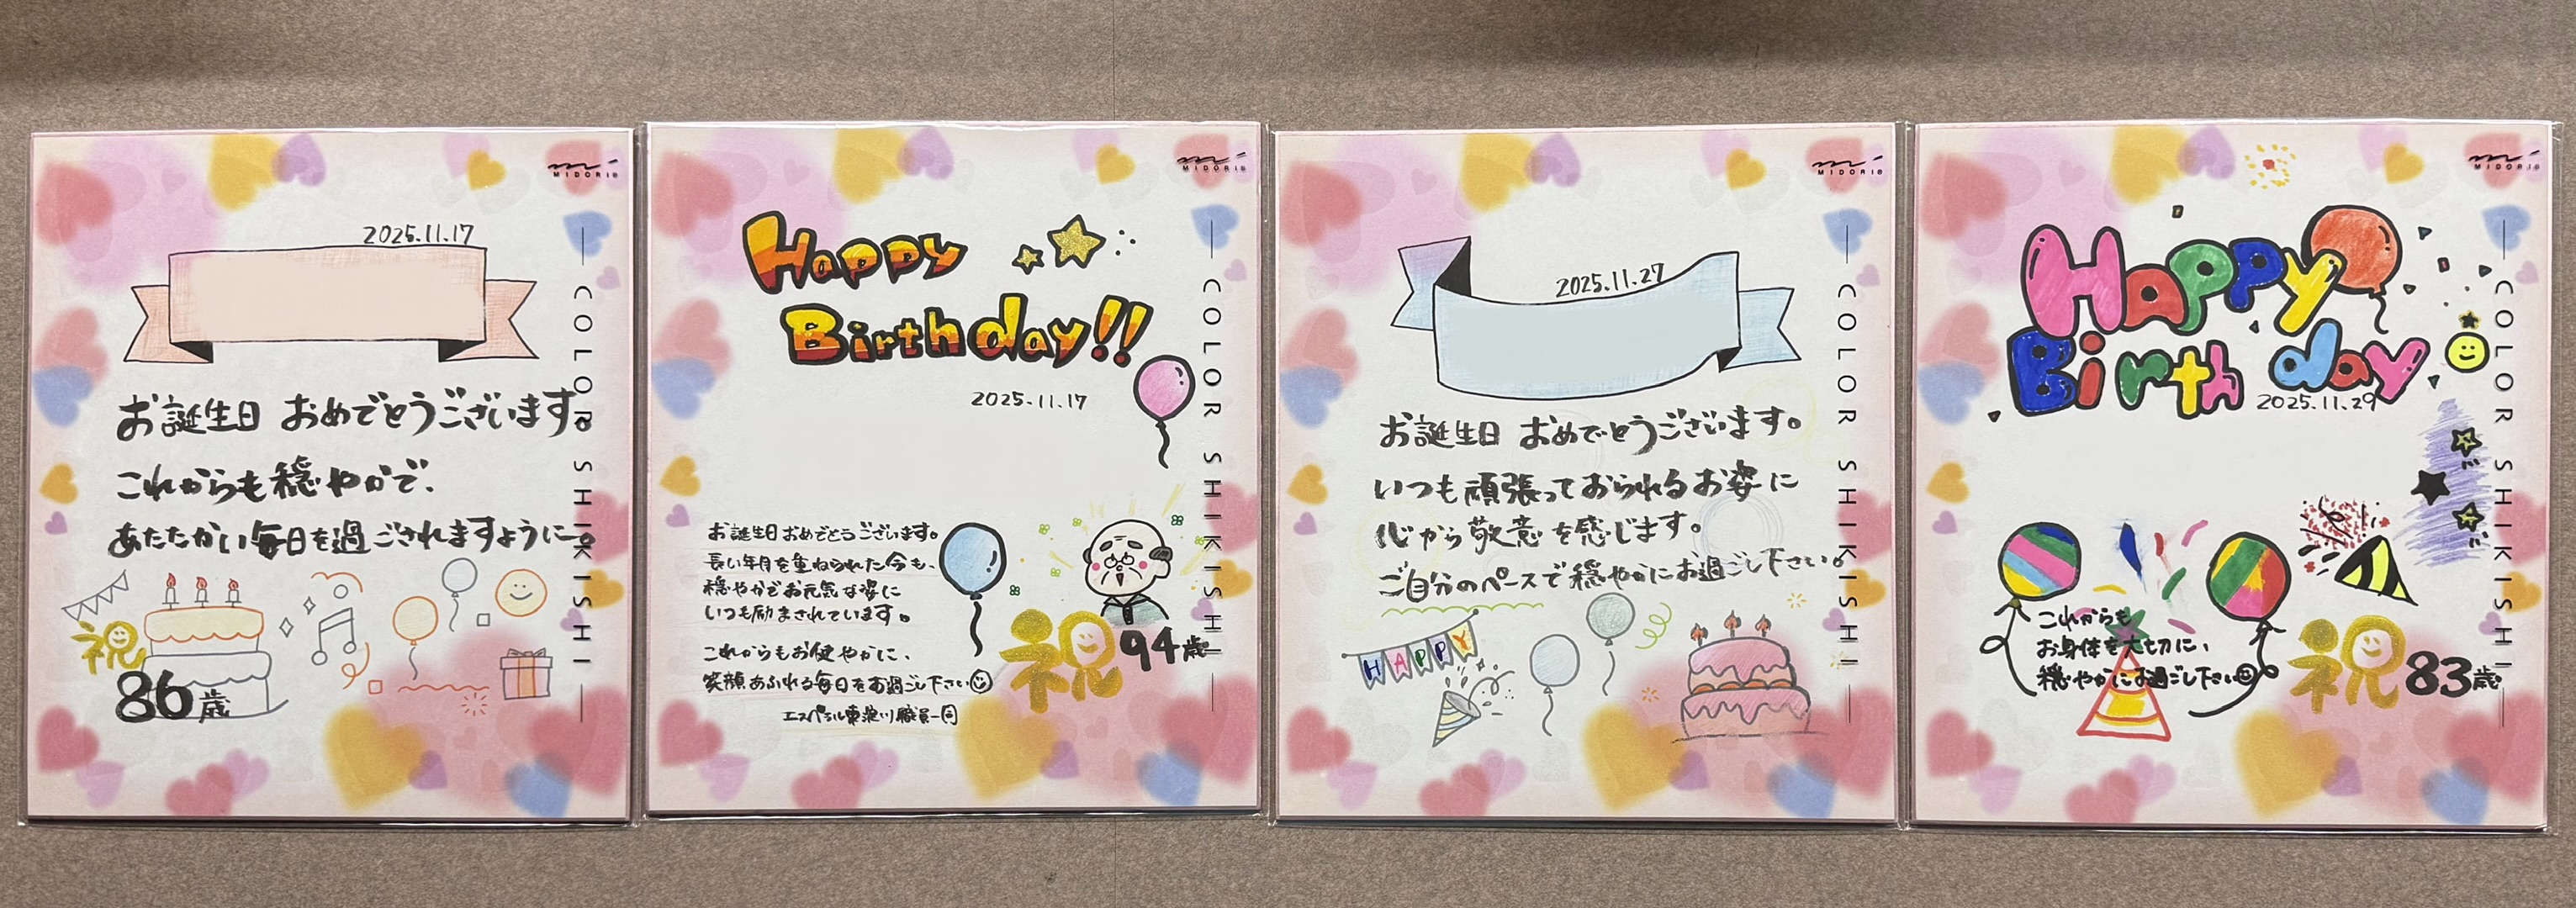 MIDORI®
COLOR SHIKISHI
2025.11.17
お誕生日 おめでとうございます。
これからも穏やかで、
あたたかい毎日を過ごされますように。
祝
86歳
MIDORI®
COLOR SHIKISHI
Happy
Birthday!!
2025.11.17
お誕生日おめでとうございます。
長い年月を重ねられた今も、
穏やかでお元気な姿に
いつも励まされています。
これからもお健やかに、
笑顔あふれる毎日をお過ごし下さい
エスペラル東淀川職員一同
祝
94歳
MIDORI®
COLOR SHIKISHI
2025.11.27
お誕生日 おめでとうございます。
いつも頑張っておられるお姿に
心から敬意を感じます。
ご自分のペースで穏やかにお過ごし下さい。
HAPPY
MIDORI®
COLOR SHIKISHI
Happy
Birthday
2025.11.29
これからも
お身体を大切に、
穏やかにお過ごし下さい
祝
83歳